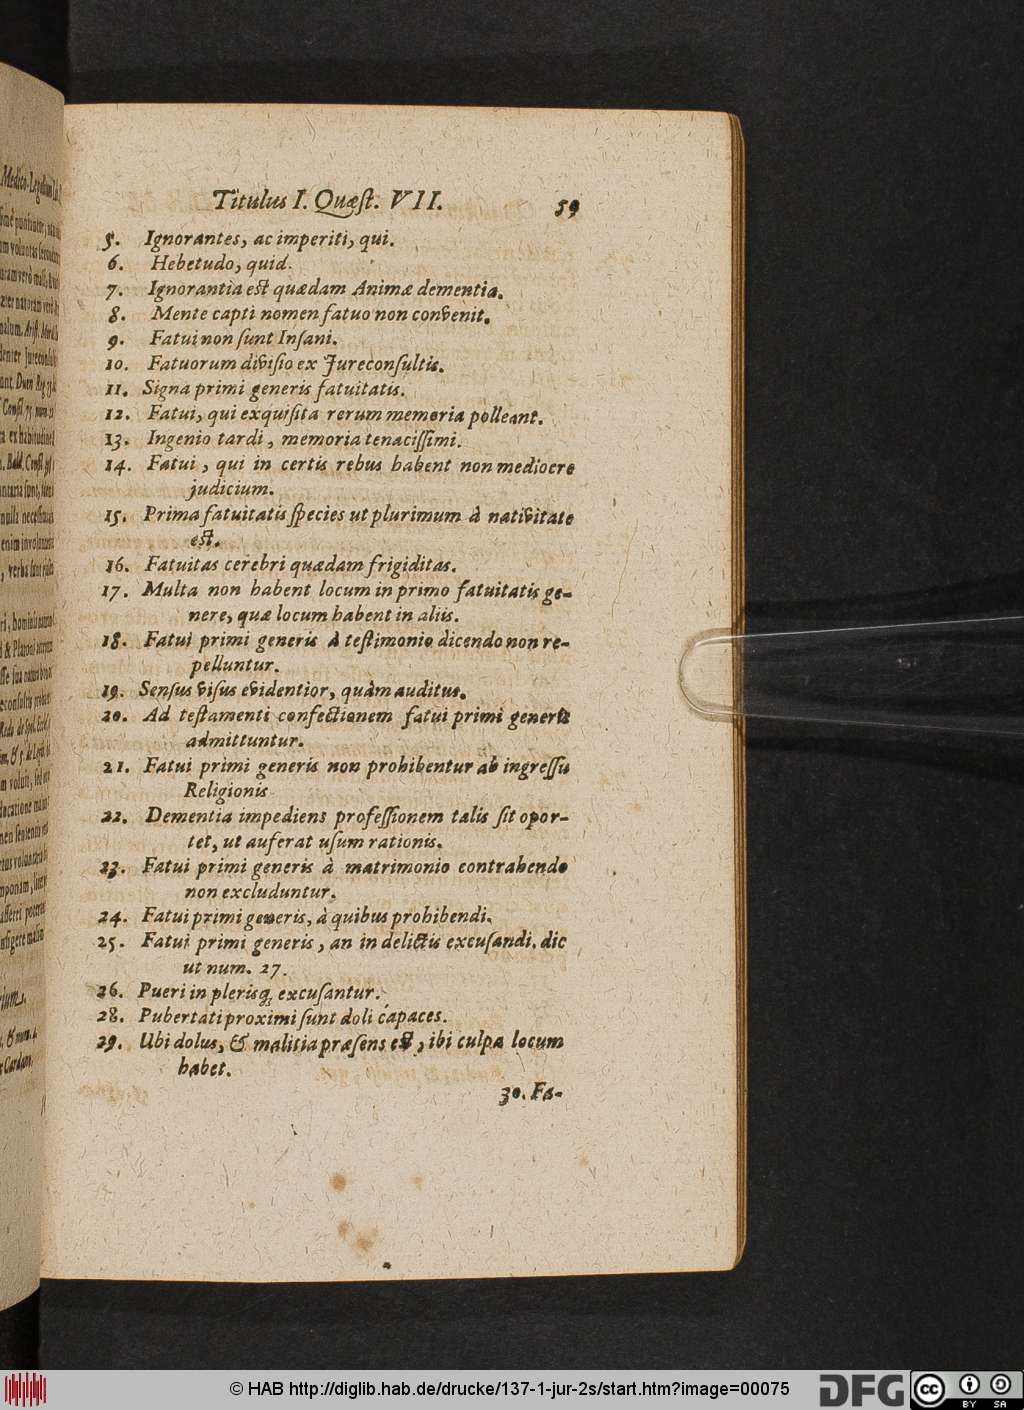 Titulus I. Quæſt. VII. 59
5. Ignorantes, ac imperiti, qui.
6. Hebetudo, quid.
7. Ignorantia est quædam Animæ dementia.
8. Mente capti nomen fatuo non convenit.
9. Fatui non ſunt Inſani.
10. Fatuorum diviſio ex Jureconſultis.
11. Signa primi generis fatuitatis.
12. Fatui, qui exquiſita rerum memoria polleant.
13. Ingenio tardi, memoria tenaciſſimi.
14. Fatui, qui in certis rebus habent non mediocre
judicium.
15. Prima fatuitatis ſpecies ut plurimum à nativitate
est.
16. Fatuitas cerebri quædam frigiditas.
17. Multa non habent locum in primo fatuitatis ge-
nere, quæ locum habent in aliis.
18. Fatui primi generis à teſtimonio dicendo non re-
pelluntur.
19. Senſus viſus evidentior, quàm auditus.
20. Ad teſtamenti confectionem fatui primi generis
admittuntur.
21. Fatui primi generis non prohibentur ab ingreſſu
Religionis
22. Dementia impediens profeſſionem talis ſit opor-
tet, ut auferat uſum rationis.
23. Fatui primi generis à matrimonio contrahendo
non excluduntur.
24. Fatui primi generis, à quibus prohibendi.
25. Fatui primi generis, an in delictis excuſandi. dic
ut num. 27.
26. Pueri in plerisq; excuſantur.
28. Pubertati proximi ſunt doli capaces.
29. Ubi dolus, & malitia præſens est, ibi culpa locum
habet.
30. Fa-
© HAB http://diglib.hab.de/drucke/137-1-jur-2s/start.htm?image=00075
DFG
cc BY SA